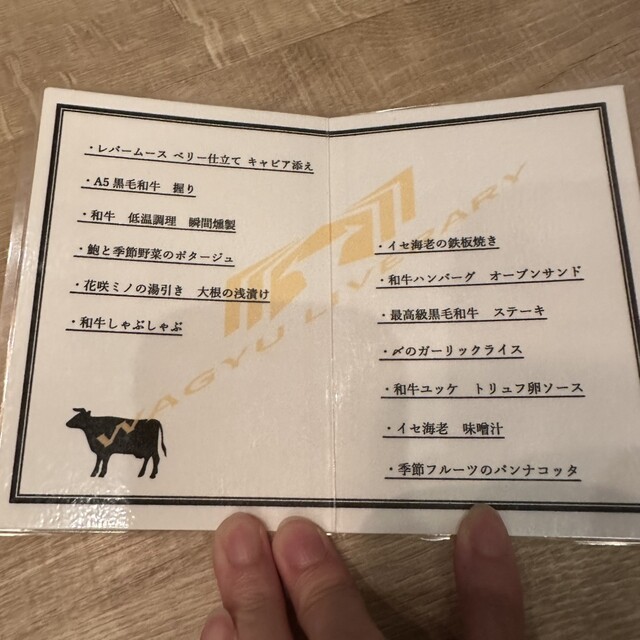 ・レバームース ベリー仕立て キャビア添え
・A5黒毛和牛 握り
・和牛 低温調理 瞬間燻製
・鮑と季節野菜のポタージュ
・花咲ミノの湯引き 大根の浅漬け
・和牛しゃぶしゃぶ
・イセ海老の鉄板焼き
・和牛ハンバーグ オープンサンド
・最高級黒毛和牛 ステーキ
・〆のガーリックライス
・和牛ユッケ トリュフ卵ソース
・イセ海老 味噌汁
・季節フルーツのパンナコッタ
WAGYU